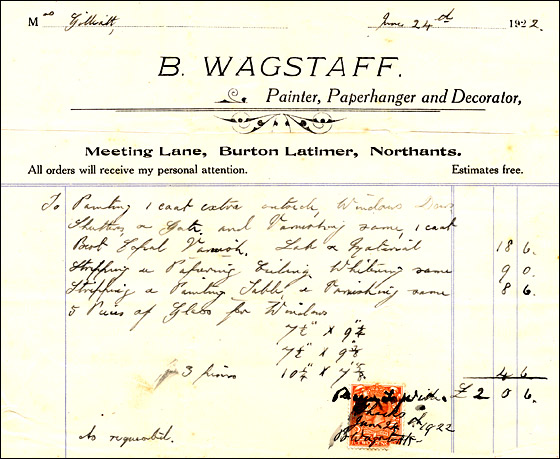 Mrs Gillett, June 24th 1922.
B. WAGSTAFF.
Painter, Paperhanger and Decorator,
Meeting Lane, Burton Latimer, Northants.
All orders will receive my personal attention. Estimates free.
To Painting 1 coat extra outside, Windows Doors
Shutters & Gate and Varnishing same, 1 coat
Best Copal Varnish. Lab & Material 18 6.
Stripping & Papering Ceiling Whiting same 9 0.
Stripping & Painting Table, & Varnishing same 8 6.
5 Pieces of Glass for Windows
7½" x 9
7½" x 9
3 10½" x 7 4 6
Paid With £2 0 6.
Thanks
June 24th 1922
B Wagstaff
As requested.